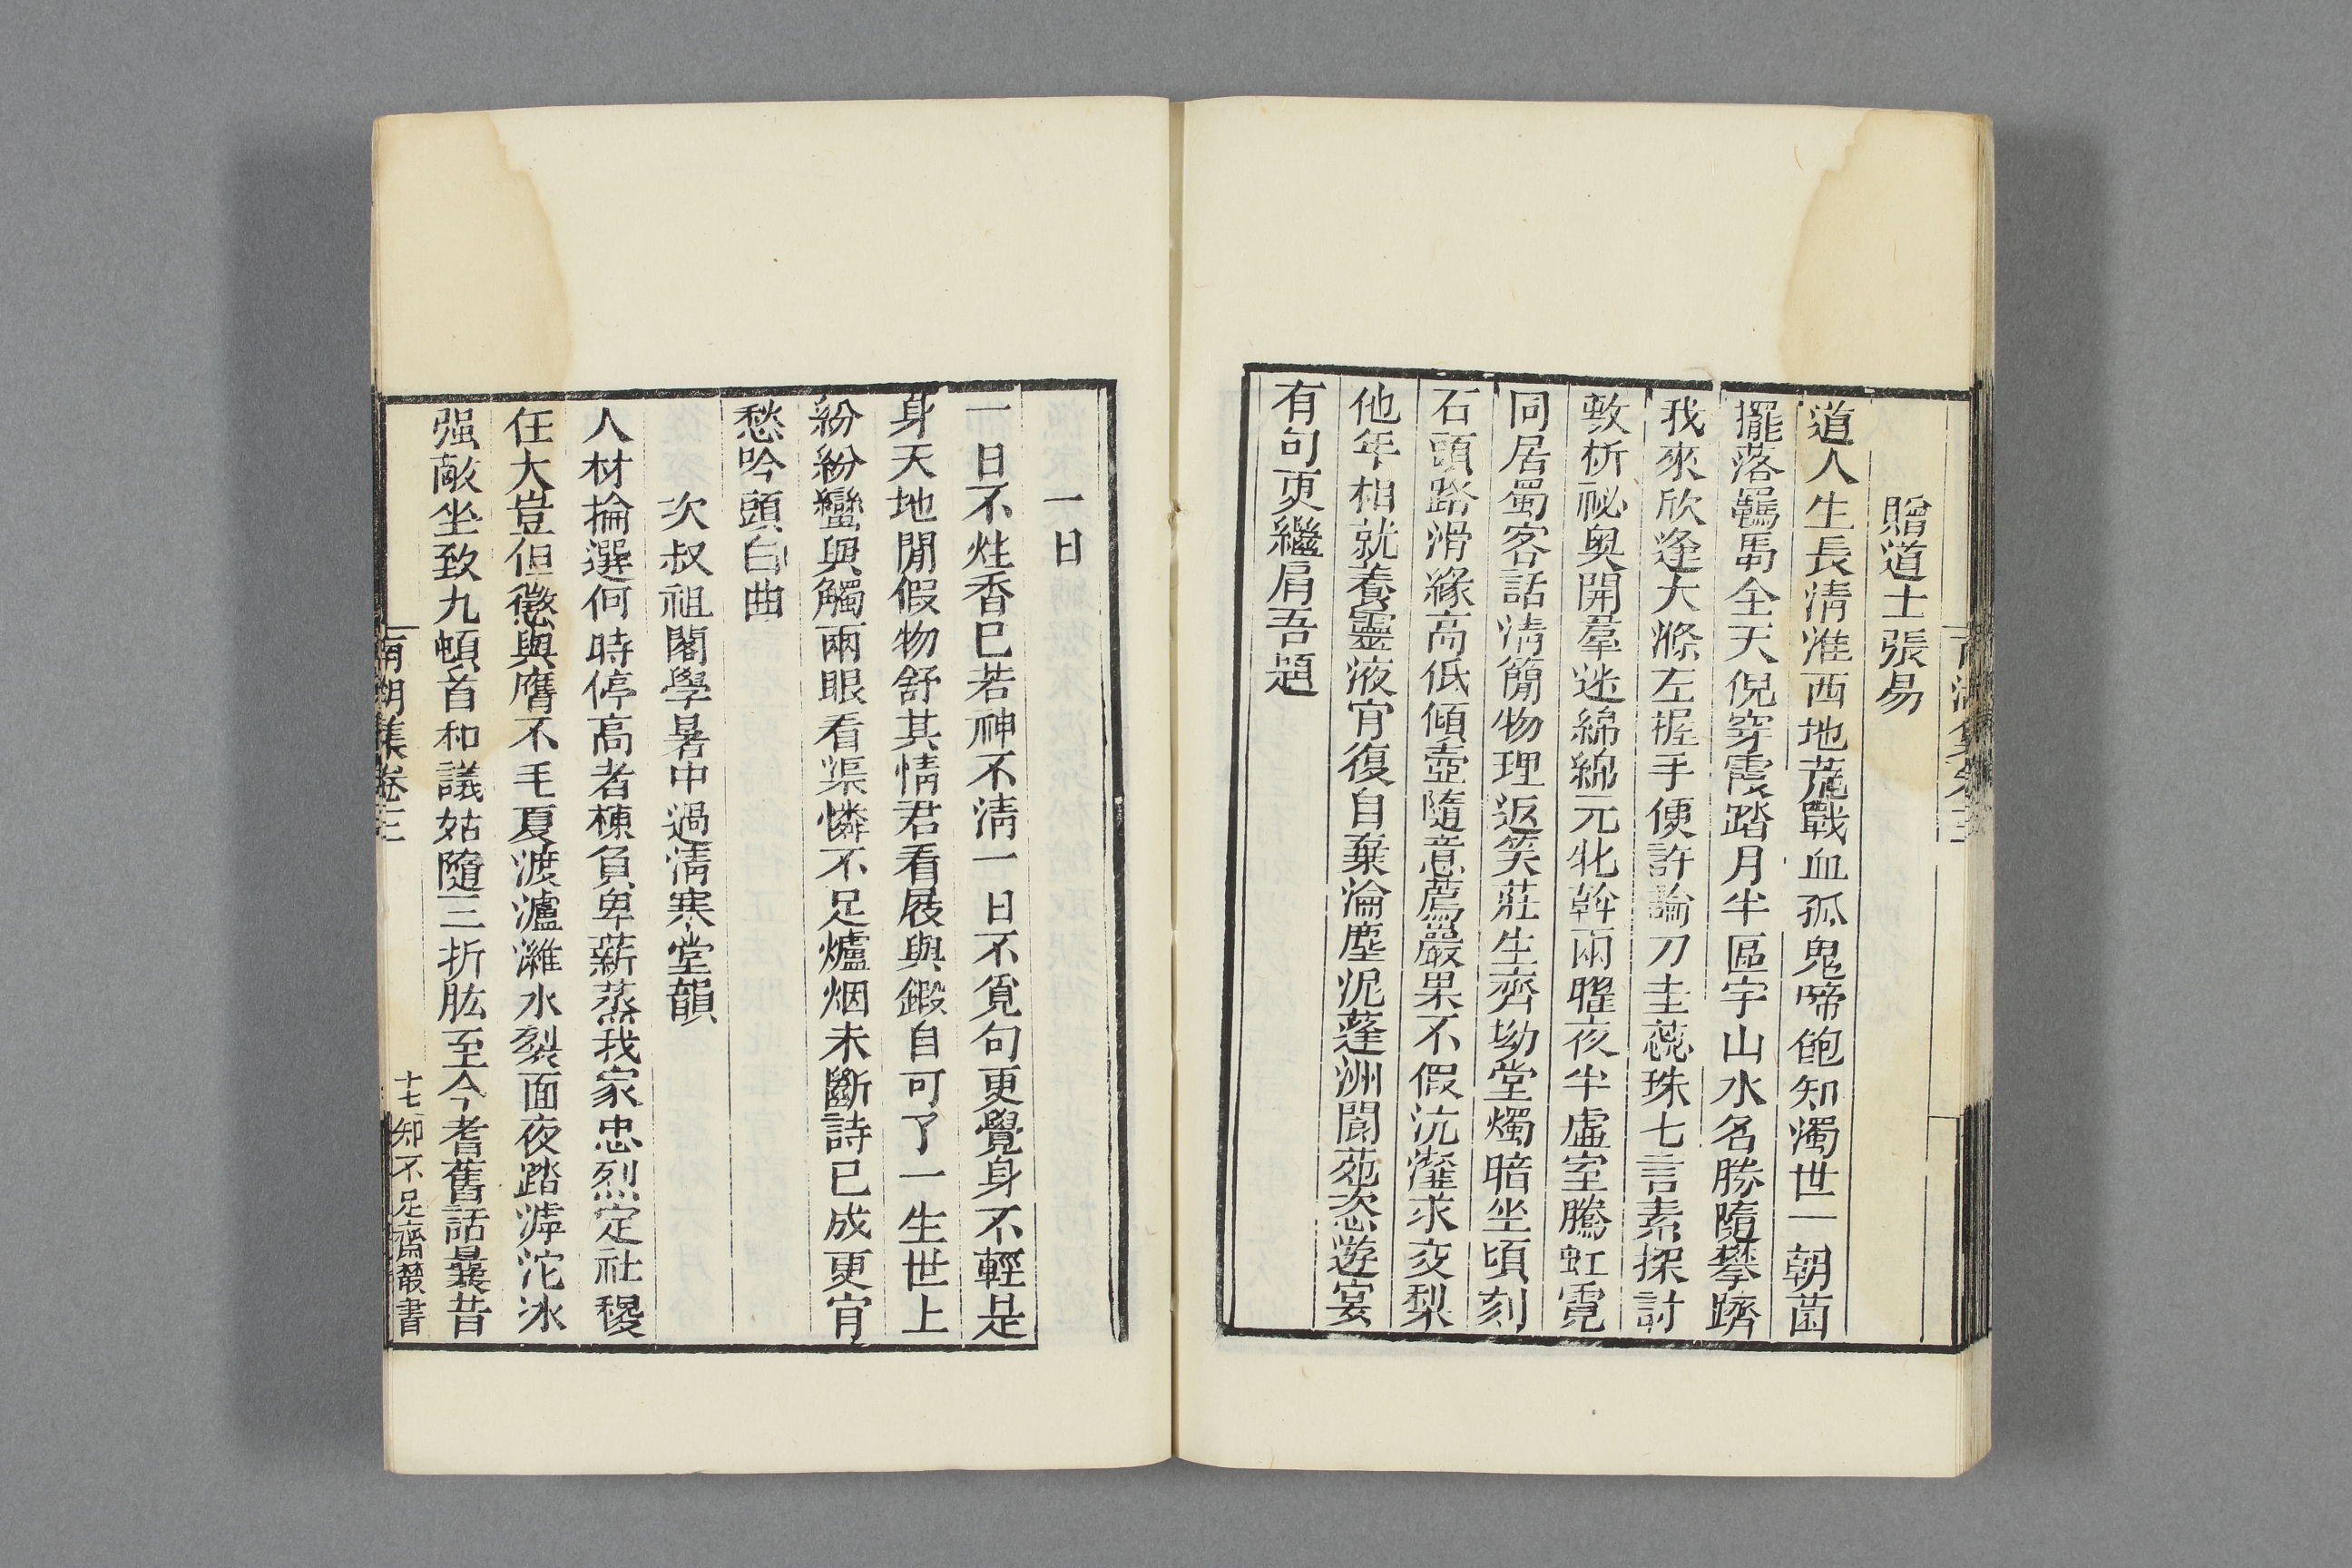 贈道士張易
道人生長淸淮西地荒戰血孤鬼啼飽知濁世一朝菌
擺落羈馽全天倪穿霞踏月半區宇山水名勝隨攀躋
我來欣逢大滌左握手便許論刀圭蕊珠七言素探討
敷析祕奥開羣迷綿綿元牝斡兩曜夜半虛室騰虹霓
同居蜀客話淸簡物理返笑莊生齊坳堂燭暗坐頃刻
石頭路滑緣高低傾壺隨意薦巖果不假沆瀣求交梨
他年相就養靈液肯復自棄淪塵泥蓬洲閬苑恣遊宴
有句更繼肩吾題
一日
一日不炷香巳若神不淸一日不覓句更覺身不輕是
身天地閒假物舒其情君看屐與鍛自可了一生世上
紛紛蠻與觸兩眼看渠憐不足爐烟未斷詩已成更肯
愁吟頭白曲
次叔祖閣學暑中過淸寒堂韻
人材掄選何時停高者棟負卑薪蒸我家忠烈定社稷
任大豈但懲與膺不毛夏渡瀘灕水裂面夜踏滹沱冰
强敵坐致九頓首和議姑隨三折肱至今耆舊話曩昔
南湖集卷三
十七
知不足齋叢書